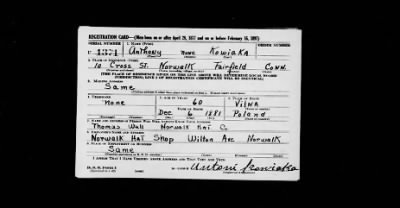 REGISTRATION CARD—(Men born on or after April 28, 1877 and on or before February 16, 1897)
SERIAL NUMBER 1. NAME (Print) ORDER NUMBER
U 1371 Anthony None Kowiaka
2. PLACE OF RESIDENCE (Print)
10 Cross St. Norwalk Fairfield Conn.
[THE PLACE OF RESIDENCE GIVEN ON THE LINE ABOVE WILL DETERMINE LOCAL BOARD
JURISDICTION; LINE 2 OF REGISTRATION CERTIFICATE WILL BE IDENTICAL]
3. MAILING ADDRESS
Same
4. TELEPHONE 5. AGE IN YEARS 6. PLACE OF BIRTH
None 60 Vilna
DATE OF BIRTH
Dec 6 1881 Poland
7. NAME AND ADDRESS OF PERSON WHO WILL ALWAYS KNOW YOUR ADDRESS
Thomas Wall Norwalk
8. EMPLOYER'S NAME AND ADDRESS
Norwalk Hat Shop Wilton Ave Norwalk
9. PLACE OF EMPLOYMENT OR BUSINESS
Same
I AFFIRM THAT I HAVE VERIFIED ABOVE ANSWERS AND THAT THEY ARE TRUE.
Antoni